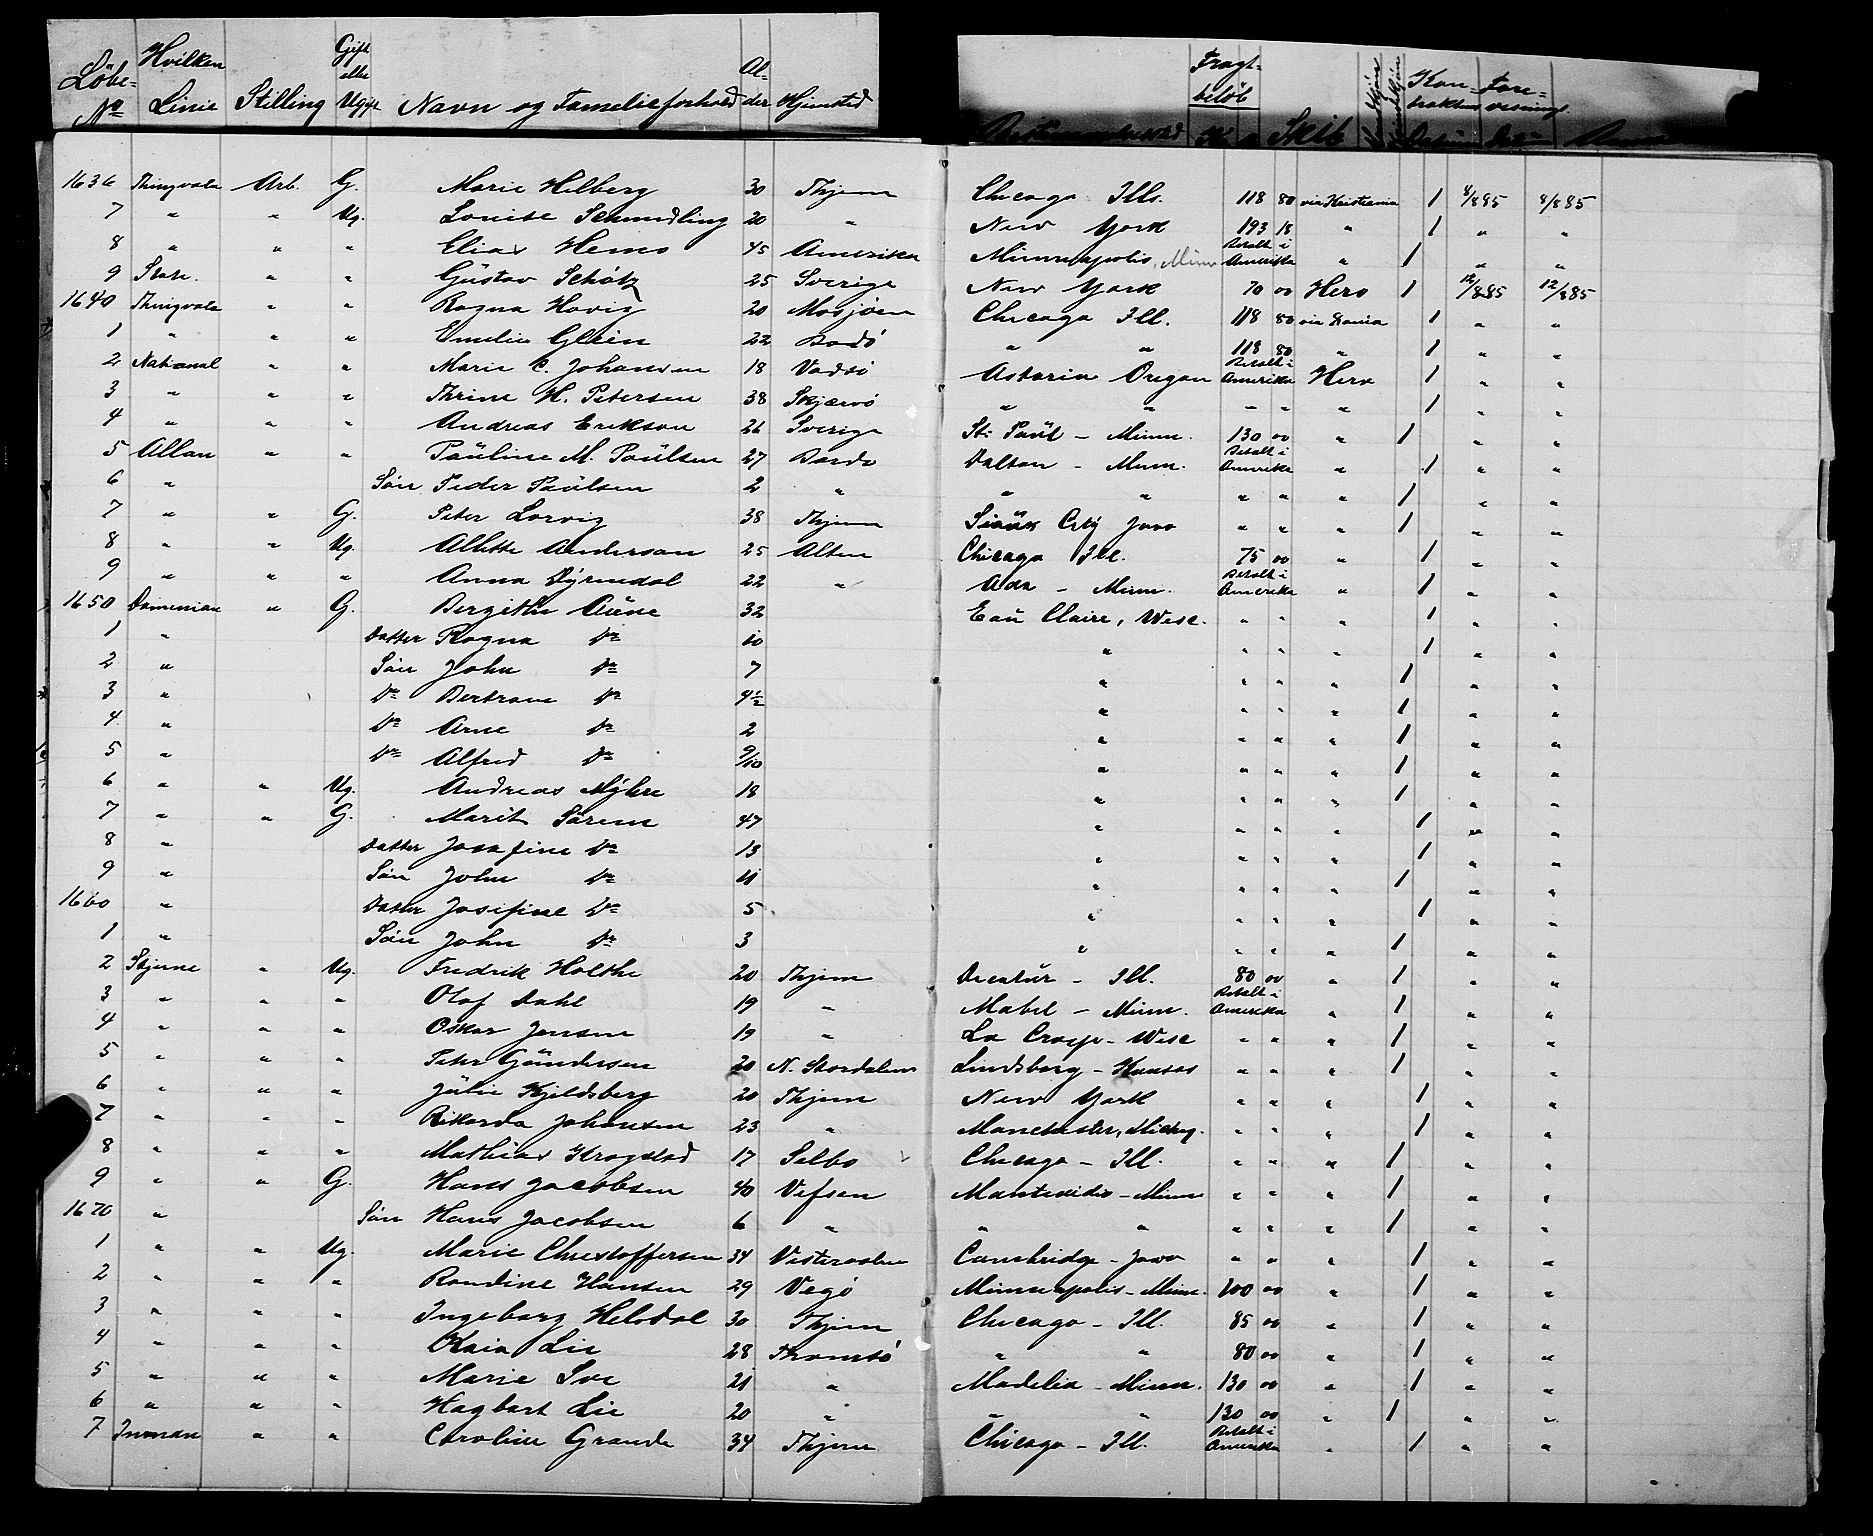 Löbe- No Hvilken Linie Stilling Gift eller Ugift Navn og Familieforhold Alder Hjemsted Fragtbelöb Kr Skib Kontraktens Forevisnings
1636 Thingvala Arb. G. Marie Helberg 30 Thjem Chicago Ills. 118 80 via Kristiania 1 4/8 85 4/8 85
7 " " Ug. Louise Schmidling 20 " New York 193 18 " 1 " "
8 " " " Elias Hemo 45 Amerika Minneapolis, Minn Betalt i Amerika " 1 " "
9 State. " " Gustav Schötz 25 Sverige New York 70 00 Hero 1 12/8 85 12/8 85
1640 Thingvala " " Ragna Hovig 20 Mosjöen Chicago Ill. 118 80 via Dania 1 " "
1 " " " Emilie Glein 22 Bodö " " 118 80 " 1 " "
2 National " " Marie C. Johansen 18 Vadsö Astoria Oregon Betalt i Amerika Hero 1 " "
3 " " " Thrine H. Petersen 38 Skjærvö " " " " " 1 " "
4 " " " Andreas Erikson 26 Sverige St. Paul - Minn. 130 00 " 1 " "
5 Allan " " Pauline M. Paulsen 27 Bardo Dalton - Minn. Betalt i Amerika " 1 " "
6 " Sön Peder Paulsen 2 " " " " " " 1 " "
7 " " G. Peter Lorvig 38 Thjem Sioux City Jova " " " 1 " "
8 " " Ug. Allette Anderson 25 Alten Chicago Ill. 75 00 " 1 " "
9 " " " Anna Dyrendal 22 " Ada - Minn. Betalt i Amerika " 1 " "
1650 Dominion " G. Bergithe Aune 32 Eau Claire, Wisc. " " " 1 " "
1 " Datter Ragna Do 10 " " " " 1 " "
2 " Sön John Do 7 " " " " 1 " "
3 " Do Bertram Do 4½ " " " " 1 " "
4 " Do Arne Do 2 " " " " 1 " "
5 " Do Alfred Do 9/10 " " " " 1 " "
6 " " Ug. Andreas Myhre 18 " " " " 1 " "
7 " " G. Marit Sörem 47 " " " " 1 " "
8 " Datter Josefine Do 13 " " " " 1 " "
9 " Sön John Do 11 " " " " 1 " "
1660 " Datter Josifine Do 5 " " " " 1 " "
1 " Sön John Do 3 " " " " 1 " "
2 Stjerne " Ug. Fredrik Holthe 20 Thjem Decatur - Ill. 80 00 " 1 " "
3 " " " Olaf Dahl 19 " Mabel - Minn. Betalt i Amerika " 1 " "
4 " " " Oskar Jensen 19 " La Crosse - Wisc " " " 1 " "
5 " " " Peter Gundersen 20 N. Stordalen Lindsborg - Kansas " " " 1 " "
6 " " " Julie Kjeldsberg 20 Thjem New York " " " 1 " "
7 " " " Rikarda Johansen 23 " Manchester, Michg. " " " 1 " "
8 " " " Mathias Krogstad 17 Selbo Chicago - Ill. " " " 1 " "
9 " " G. Hans Jacobsen 40 Vefsen Montevidio - Minn " " " 1 " "
1670 " Sön Hans Jacobsen 6 " " " " " " 1 " "
1 " " Ug. Marie Christoffersen 34 Vesteraalen Cambridge - Jova " " " 1 " "
2 " " " Randine Hansen 29 Vegö Minneapolis - Minn. 100 00 " 1 " "
3 " " " Ingeborg Helsdal 30 Thjem Chicago - Ill. 85 00 " 1 " "
4 " " " Kaia Lie 28 Thromsö " " 80 00 " 1 " "
5 " " " Marie Lie 21 " Madelia - Minn. 130 00 " 1 " "
6 " " " Hagbart Lie 20 " " " 130 00 " 1 " "
7 Inman " " Caroline Grande 34 Thjem Chicago - Ill. Betalt i Amerika " 1 " "